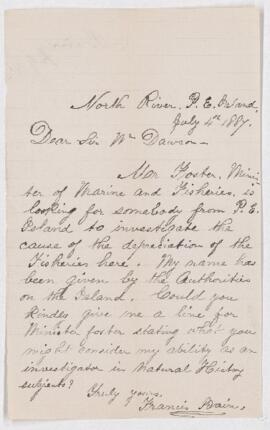 North River, P. E. Island.
July 4th 1887.
Dear Sir Wm Dawson—
Mr Foster, Minis-
ter of Marine and Fisheries, is
looking for somebody from P. E.
Island to investigate the
cause of the depreciation of the
Fisheries here. My name has
been given by the Authorities
on the Island. Could you
kindly give me a line for
Minister foster stating what you
might consider my ability as an
investigator in Natural History
subjects?
Truly yours,
Francis Bain.